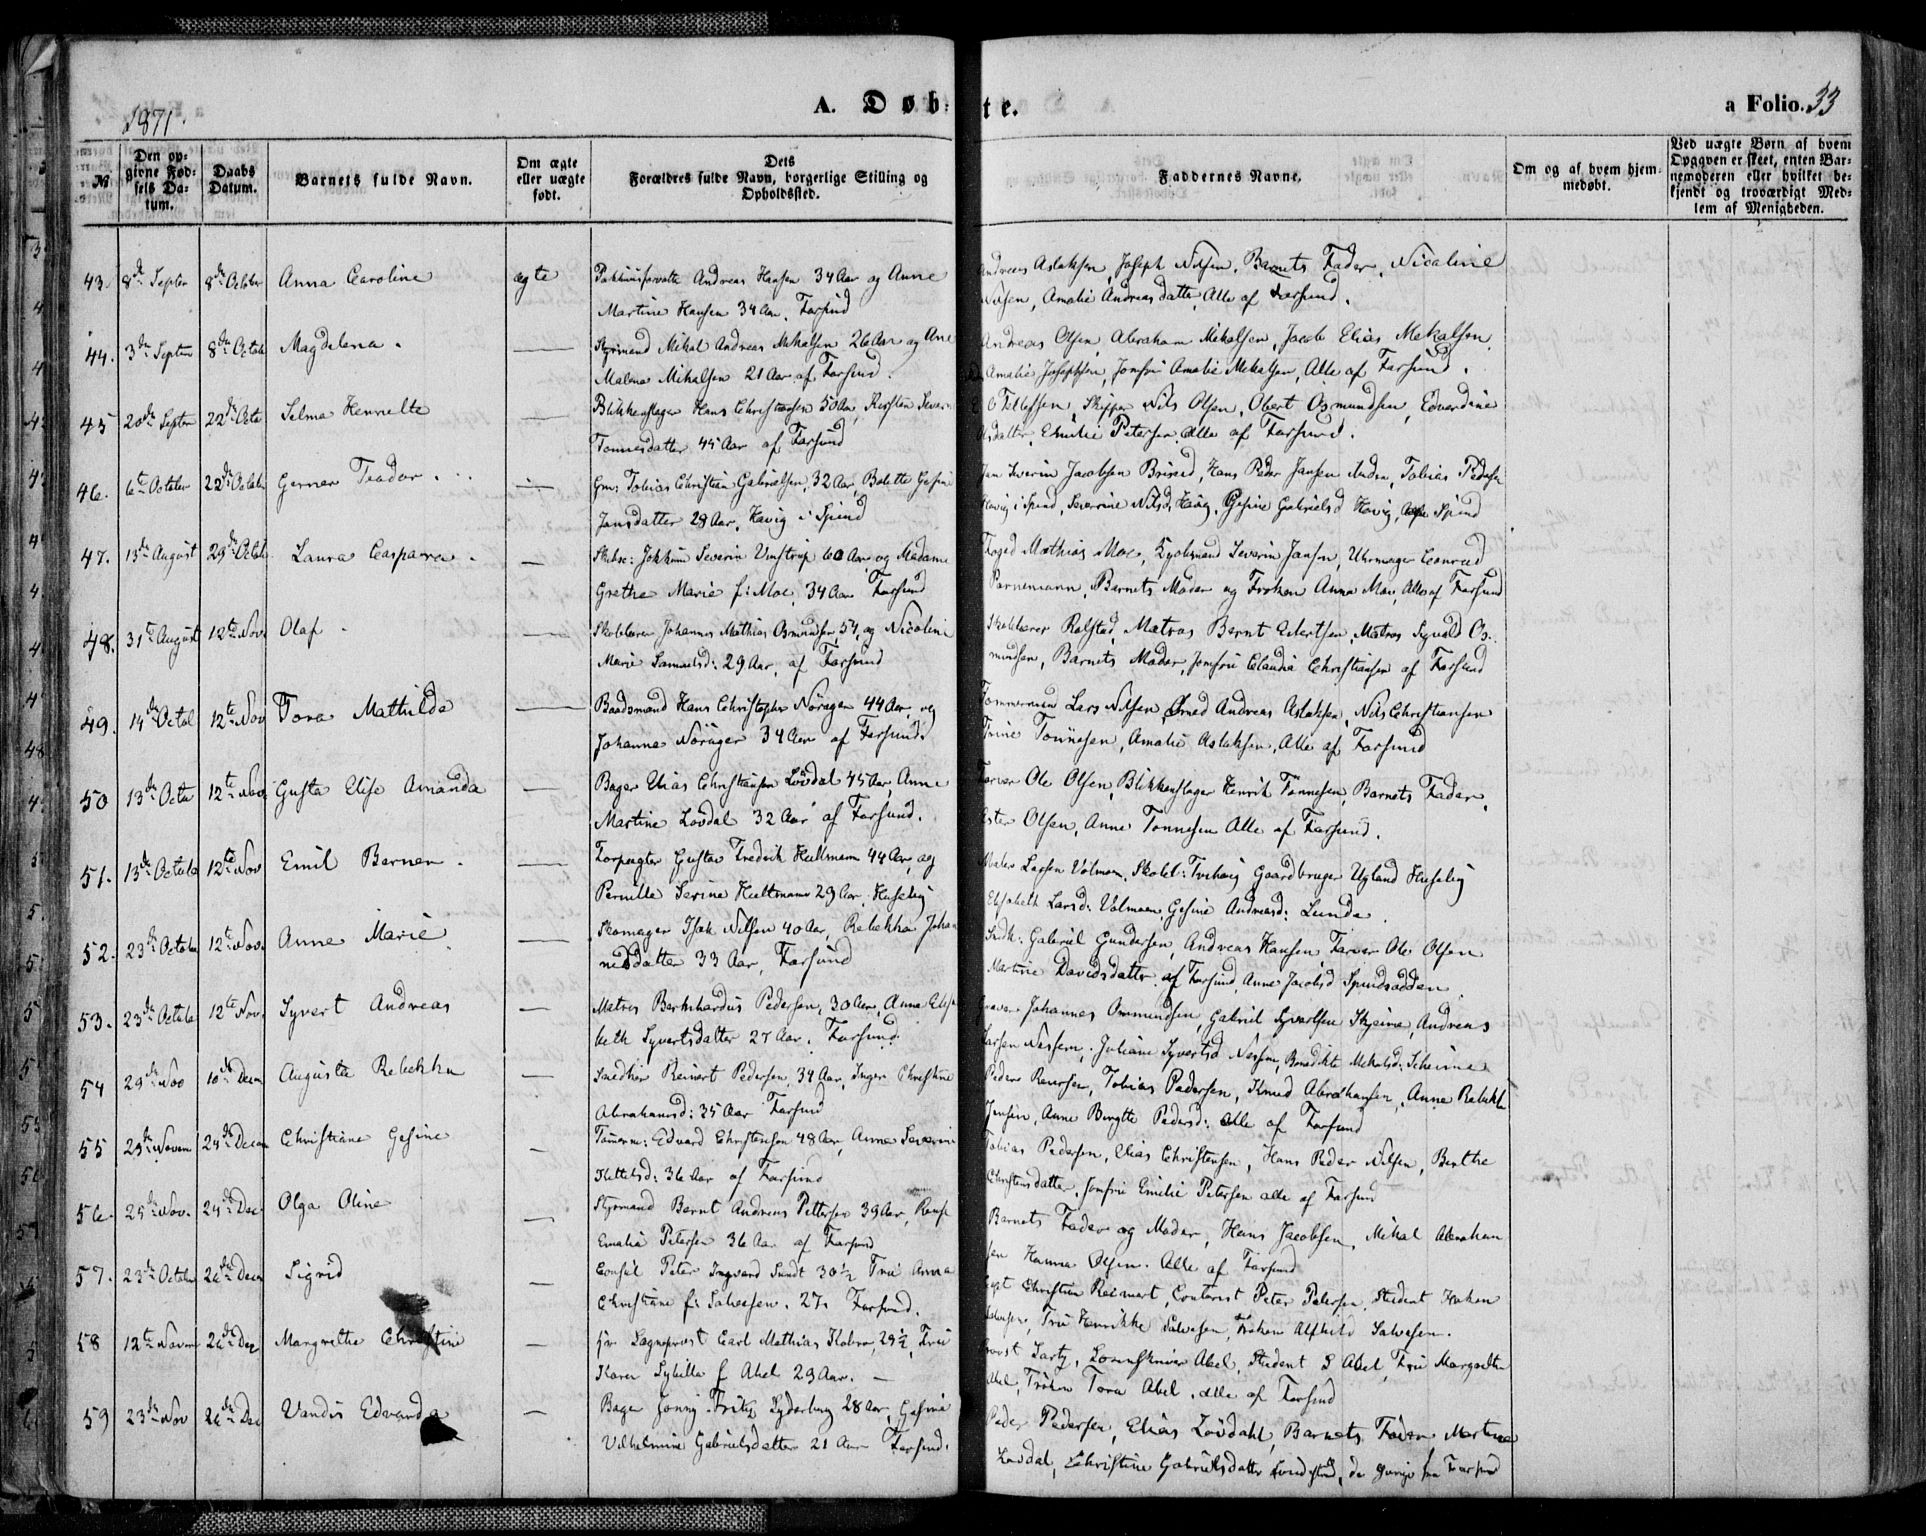 1871.
A. Døb-
te.
a Folio. 33
№
Den op-
givne Fød-
sels Da-
tum.
Daabs
Datum.
Barnets fulde Navn.
Om ægte
eller uægte
født.
Dets
Forældres fulde Navn, borgerlige Stilling og
Opholdssted.
Faddernes Navne.
Om og af hvem hjem-
medøbt.
Ved uægte Børn af hvem
Opgaven er skeet, enten Bar-
nemoderen eller hvilket be-
kjendt og troværdigt Med-
lem af Menigheden.
43. 8de Septbr 8de October Anna Caroline ægte Andreas Hansen 34 Aar og Anne
Martine Hansen 34 Aar. Farsund
Andreas Aslaksen, Joseph Nilsen, Barnets Fader, Nicoline
Nilsen, Amalie Andreasdatter, Alle af Farsund.
44. 3de Septbr 8de Octob Magdelena. Styrmand Mikal Andreas Mikalsen 26 Aar og Ane
Malene Mikalsen 21 Aar af Farsund.
Andreas Olsen, Abraham Mikalsen, Jacob Elias Mekalsen,
Amalie Josephsen, Jomfru Amalie Mekalsen, Alle af Farsund.
45 20de Septbr 22de Octo Selma Henriette Blikkenslager Hans Christiansen 50 Aar, Kirsten Sever-
Tonnesdatter 45 Aar af Farsund
Tellefsen, Skipper Nils Olsen, Obert Osmundsen, Edvardine
Emilie Petersen alle af Farsund.
46. 6te October 22de October Gerner Teodor. Gm: Tobias Christian Gabrielsen, 32 Aar, Bolette Gesine
Jansdatter 28 Aar, Havig i Spind
Jan Severin Jacobsen Briseid, Hans Peder Jansen Tobias Pedersen
Havig i Spind, Severine Nilsd. Havig, Gesine Gabrielsd Havig, Spind
47. 13de August 29de Octob Laura Caspara. Jokkum Severin Umstrup 60 Aar og Madame
Grethe Marie f: Moe, 34 Aar Farsund
Foged Mathias Moe, Kjobmand Severin Jansen, Uhrmager Conrad
Barnets Moder og Frøken Anna Moe, Alle af Farsund
48. 31te August 12te Nov. Olaf. Skolelærer Johannes Mathias Osmundsen, 57, og Nicoline
Marie Samuelsd: 29 Aar, af Farsund
Skolelærer Rolstad, Matros Bernt Eilertsen, Matros Sigvald Os-
mundsen, Barnets Moder, Jomfru Claudia Christiansen af Farsund
49. 14de Octob 12te Nov Tora Mathilda Baadsmand Hans Christopher Nørager 44 Aar, og
Johanna Nørager 34 Aar af Farsund.
Tømmermand Lars Nilsen, Andreas Aslaksen, Nils Christiansen
Trine Tønnesen, Amalie Aslaksen, Alle af Farsund
50 13de Octo 12te Nov Gusta Elise Amanda Bager Elias Christiansen Lövdal 45 Aar, Anne
Martine Lövdal 32 Aar af Farsund.
Farver Ole Olsen, Blikkenslager Henrik Tønnesen, Barnets Fader,
Ester Olsen, Anne Tonnesen Alle af Farsund.
51. 13de Octobe 12te Nov Emil Bernar. Forpagter Gustav Fredrik Hultmann 44 Aar, og
Pernille Serine Hultmann 29 Aar. Huseby
Maler Lassen Volmom, Gaardbruger Ugland Huseby
Elisabeth Larsd: Gesine Andreasd: Lunde.
52. 23de October 12te Nov. Anne Marie. Skomager Isak Nilsen 40 Aar, Rebekka Johan
nesdatter 33 Aar, Farsund
Snedk: Gabriel Gundersen, Andreas Hansen, Farver Ole Olsen
Martine Davidsdatter af Farsund, Anne Jacobsd Spindsodden.
53. 23de Octobe 12te Nov. Syvert Andreas Matros Bernhardus Pedersen, 30 Aar, Anna Elisa
beth Syvertsdatter 27 Aar. Farsund.
Johannes Ommundsen, Gabriel Syvertsen Skjeime, Andreas
Larsen Nessem, Juliane Syvertsd Nessem, Benedikte Mikalsd: Scheime
54 29de Nov 10de Decem Augusta Rebekka Snedker Reinert Pedersen, 34 Aar, Inger Christine
Abrahamsd: 35 Aar Farsund
Peder Reiersen, Tobias Pedersen, Knud Abrahamsen, Anne Rebekka
Jensen, Anne Birgitte Pedersd: alle af Farsund
55 29de Novem 24de Decem Christiane Gesine Tömmerm: Edvard Christensen 48 Aar, Anne Severine
Kittelsd: 36 Aar af Farsund
Tobias Pedersen, Elias Christensen, Hans Peder Nilsen, Berthe
Christensdatter, Jomfru Emilie Petersen alle af Farsund
56. 25de Nov. 24de Dec. Olga Oline Styrmand Bernt Andreas Pettersen 39 Aar,
Emalie Petersen 36 Aar af Farsund
Barnets Fader og Moder, Hans Jacobsen, Mikal Abraham
sen Hanna Olsen. Alle af Farsund
57. 23de October 26de Decem Sigrid Consul Peter Ingvard Sundt 30½ Frue Anna
Christiane f: Salvesen. 27. Farsund.
Christian Reinert, Contorist Peter Petersen, Student Haken
Salvesen, Fru Henrikke Salvesen, Frøken Alfhild Salvesen.
58 12te Novem 26de Dec Margrethe Christine Sogneprest Carl Mathias Kobro, 29½, Frue
Karen Sybilla f Abel 29 Aar. —
Provst Sartz, Sorenskriver Abel, Student S Abel, Fru Margrethe
Abel, Frøken Tora Abel, alle af Farsund
59 23de Nov 26de Dec Vandis Edvarda Bager Jonny Fritz Syderburg 28 Aar, Gesine
Vilhelmine Gabrielsdatter 21 Aar Farsund.
Peder Pedersen, Elias Lövdahl, Barnets Fader Martine
Lovdal, Christine Gabrielsdatter de øvrige fra Farsund